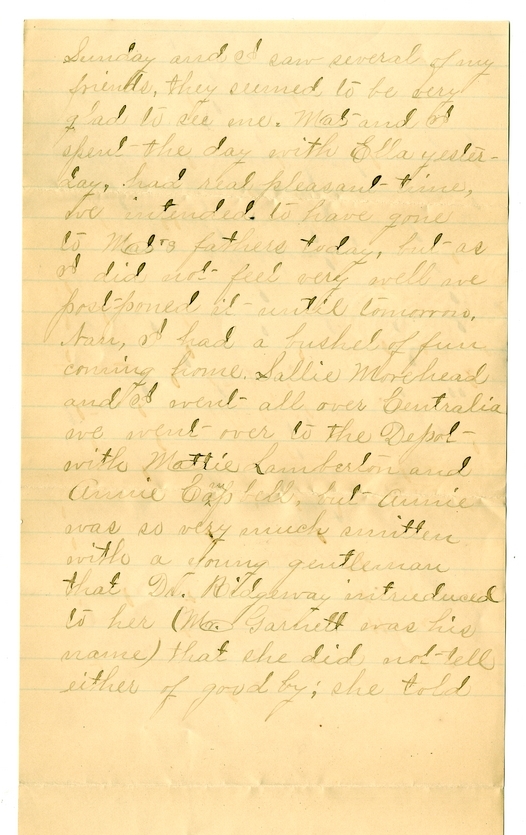 Sunday and I saw several of my
friends, they seemed to be very
glad to see me. Mat and I
spent the day with Ella yester-
day, had real pleasant time,
we intended to have gone
to Mat's fathers today, but as
I did not feel very well we
postponed it until tomorrow.
Nan, I had a bushel of fun
coming home. Sallie Morehead
and I went all over Centralia
we went over to the Depot
with Mattie Lamberton and
Annie Campbell, but Annie
was so very much smitten
with a young gentleman
that Dr. Ridgway introduced
to her (Mr. Garnett was his
name) that she did not tell
either of good by; she told